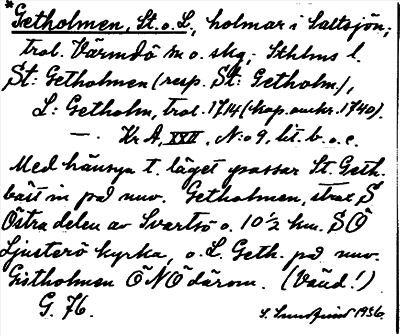 *Getholmen, St. o. L., holmar i Saltsjön;
trol. Värmdö sn o. skg, Sthlms l.
St: Getholmen (resp. St: Getholm),
L: Getholm, trol. 1714 (kop. omkr. 1740).
—. Kr A, XXII, N:o 9, lit. b. o. c.
Med hänsyn t. läget passar St. Geth.
bäst in på nuv. Getholmen, strax S
Östra delen av Svartsö o. 10 ½ km. SÖ
Ljusterö kyrka, o. L. Geth. på nuv.
Gistholmen ÖNÖ därom. (Vänd!)
G. 76.
1936.